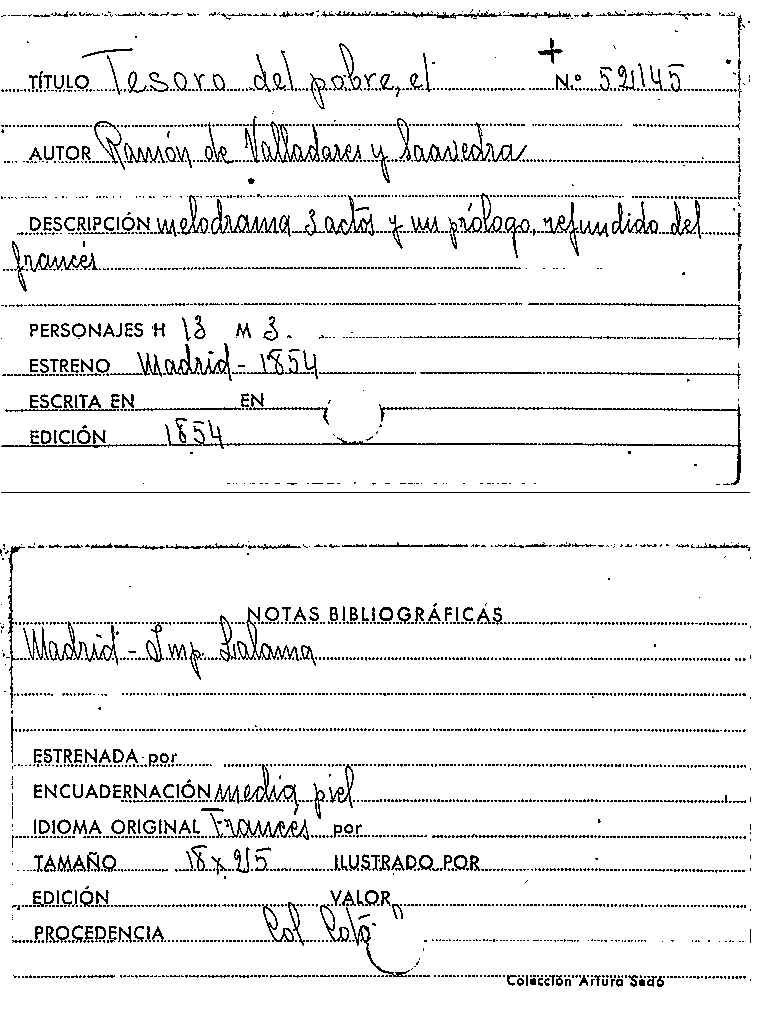 TÍTULO Tesoro del pobre, el N.º 52145
AUTOR Ramón de Valladares y Saavedra
DESCRIPCIÓN melodrama 3 actos y un prólogo, refundido del
francés
PERSONAJES H 13 M 3.
ESTRENO Madrid - 1854
ESCRITA EN EN
EDICIÓN 1854
NOTAS BIBLIOGRÁFICAS
Madrid - Imp. Lalama
ESTRENADA por
ENCUADERNACIÓN media piel
IDIOMA ORIGINAL Francés por
TAMAÑO 18 x ILUSTRADO POR
EDICIÓN VALOR
PROCEDENCIA Col
Colección Arturo Sedó